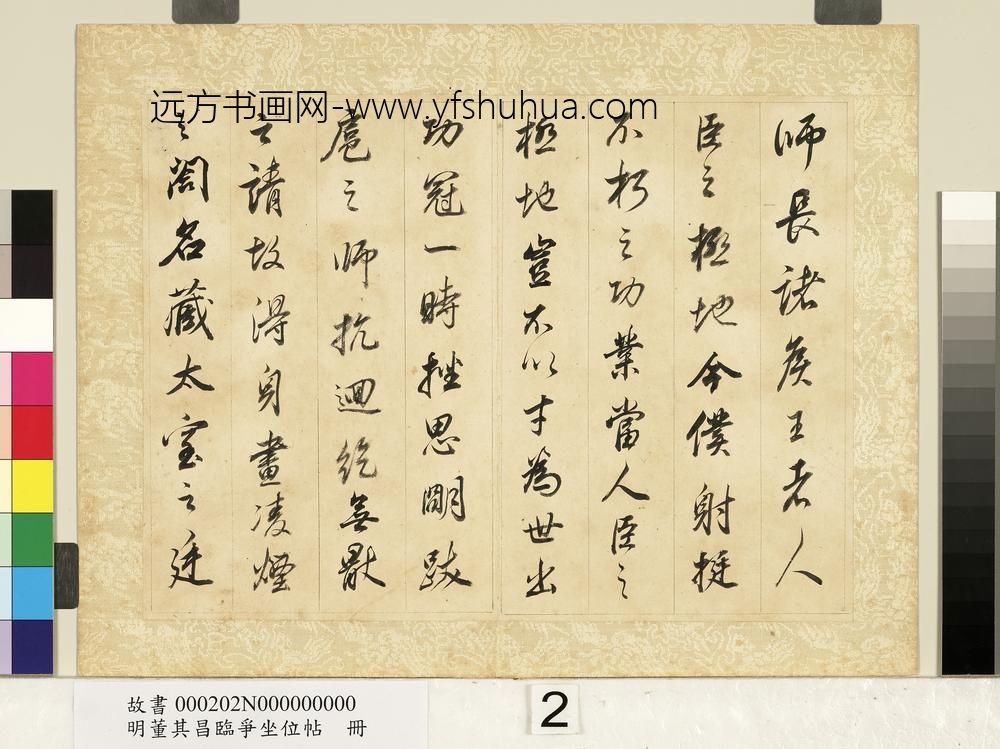 远方书画网-www.yfshuhua.com
師長諸侯王者人
臣之極地今僕射挺
不朽之功業當人臣之
極地豈不以才為世出
功冠一時挫思明跋
扈之師抗迴紇無厭
之請故得身畫凌煙
之閣名藏太室之廷
故書 000202N000000000
明董其昌臨爭坐位帖 冊
2